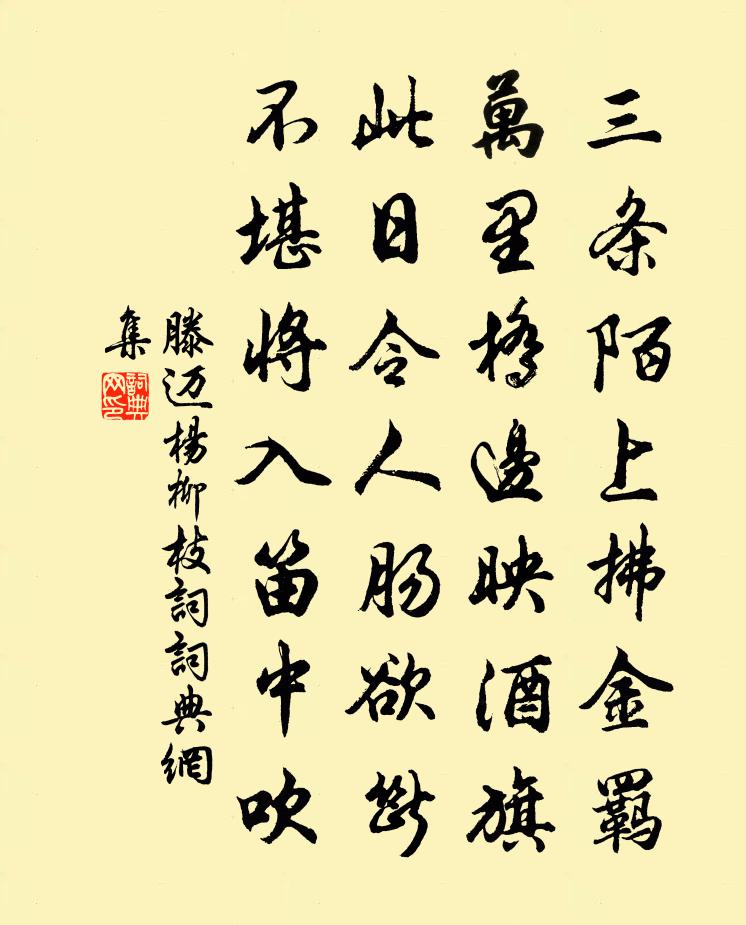 三条陌上拂金羈
萬里橋邊映酒旗
此日令人腸欲斷
不堪將入笛中吹
滕迈楊柳枝詞詞典網
集
詞典
网印